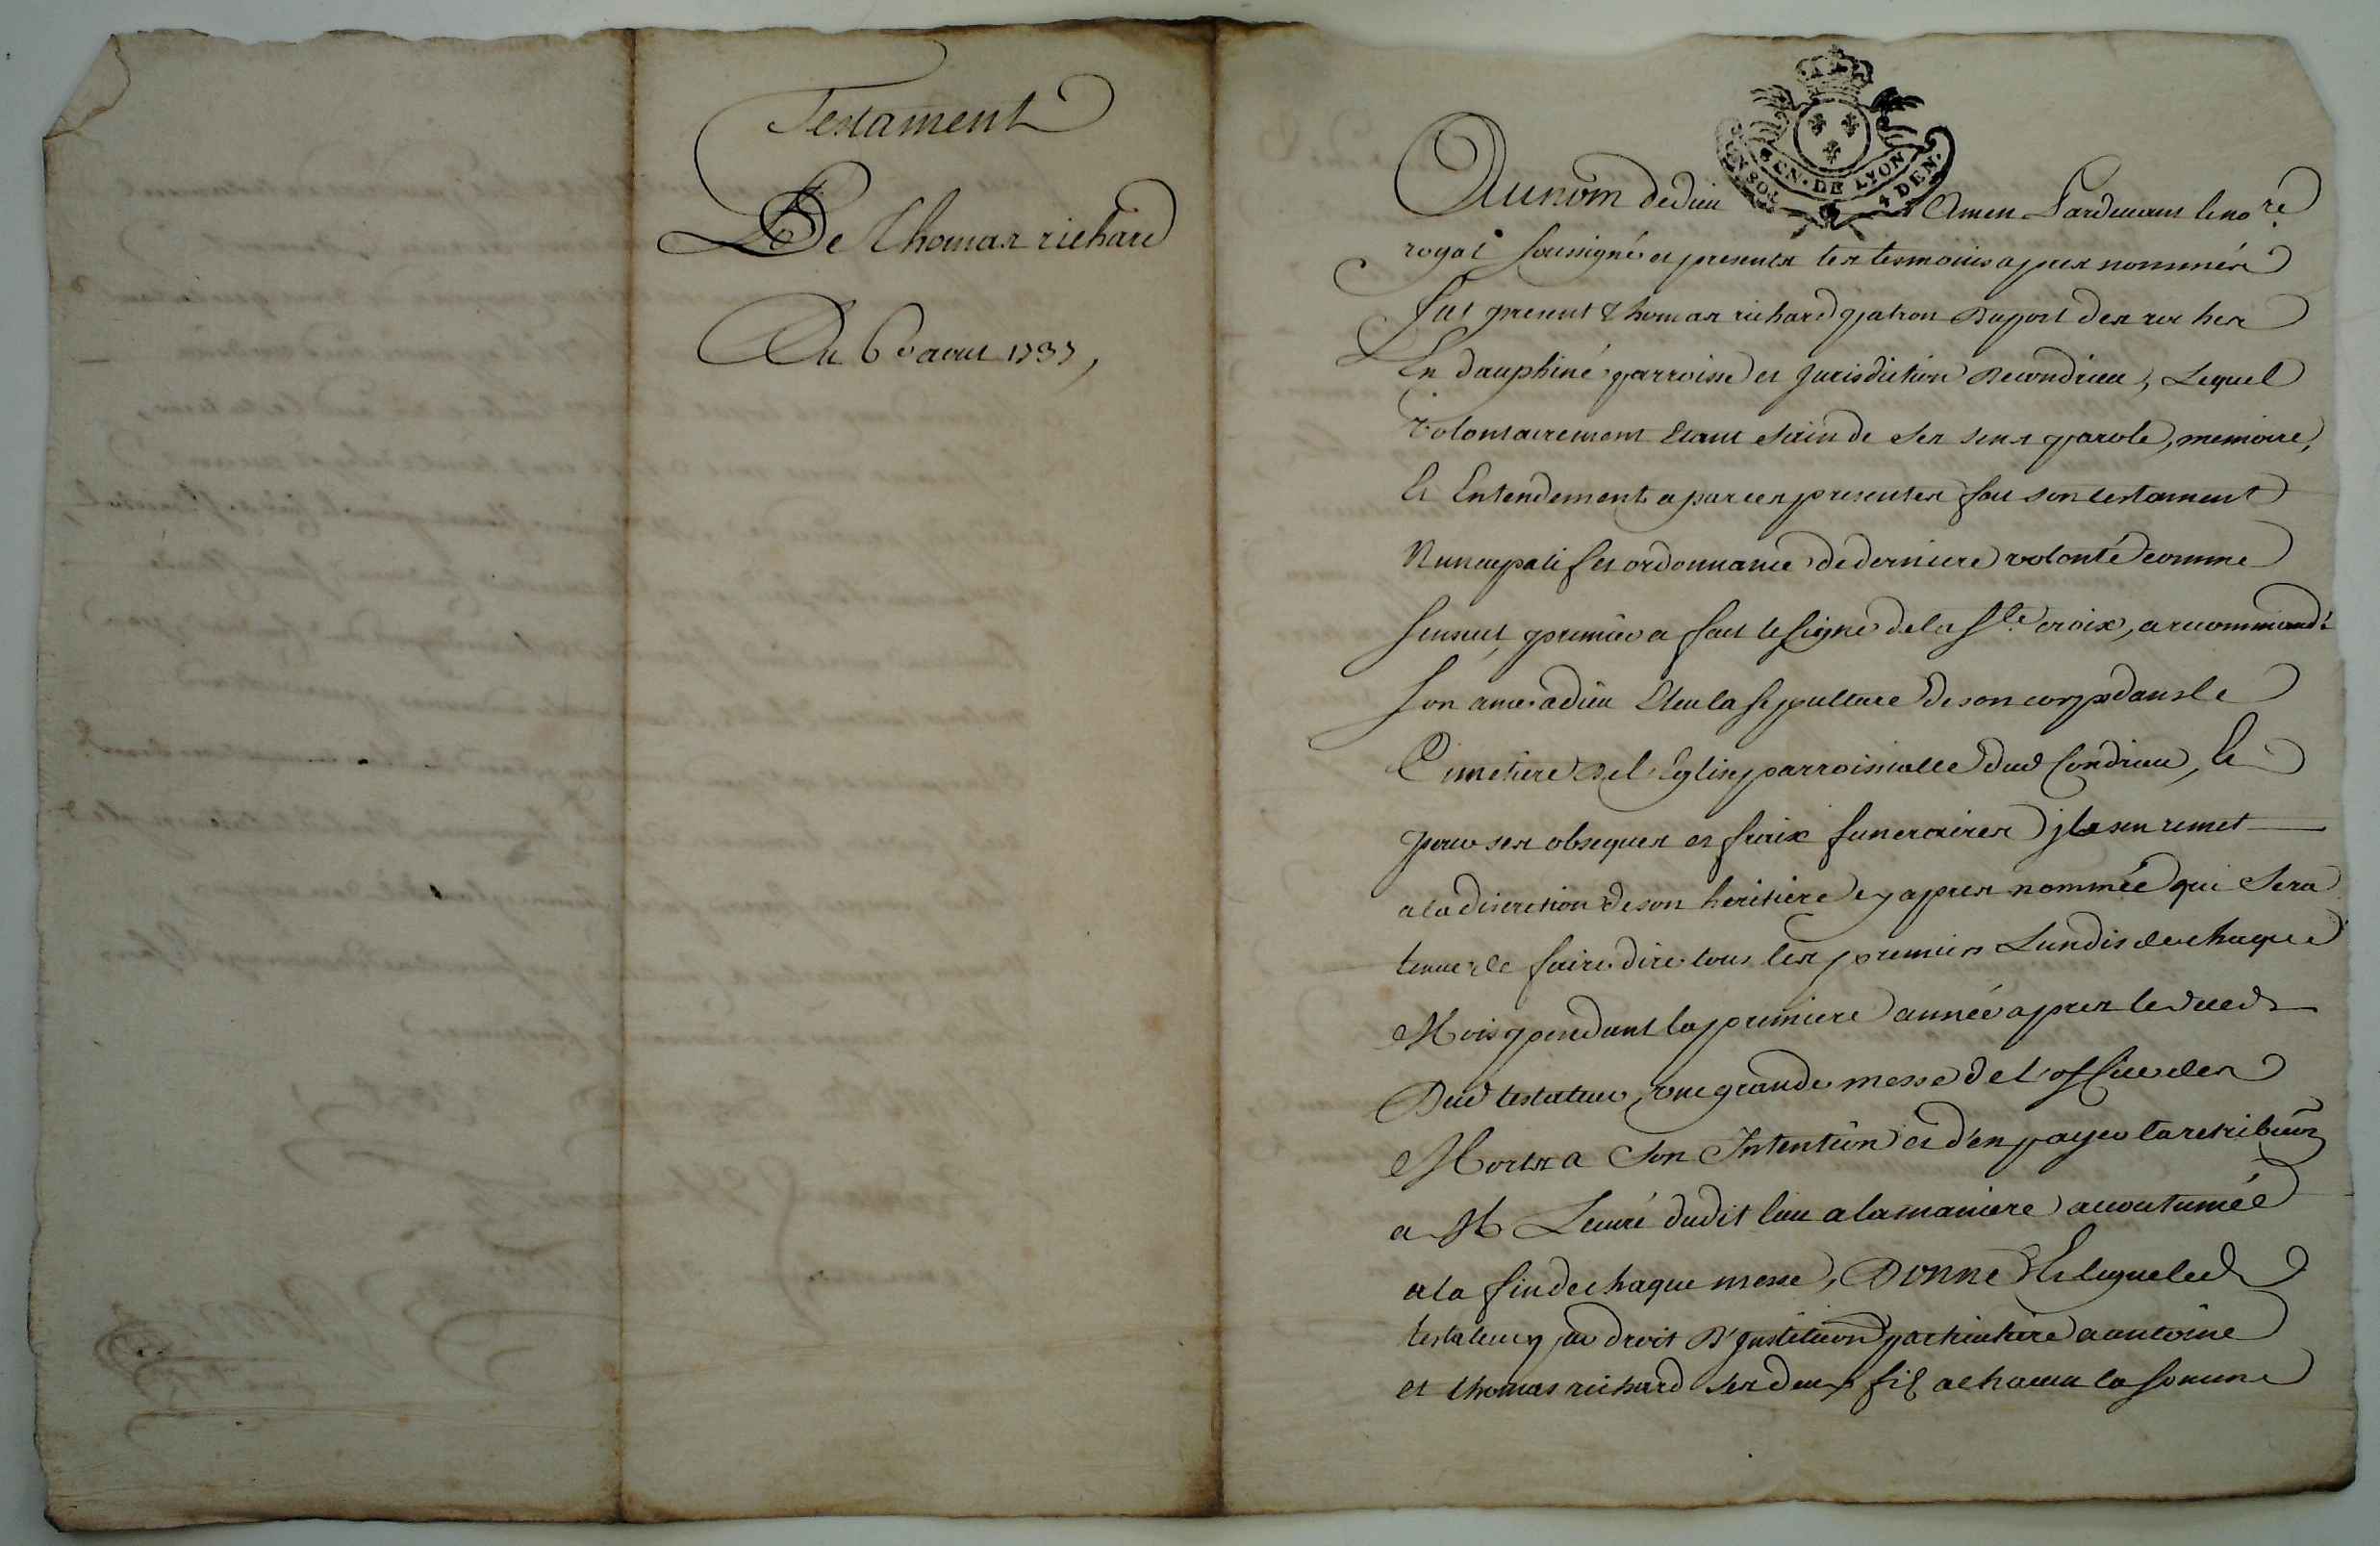 Testament
De Thomas richard
Du 6e aout 1737,
UN SOL 4 DEN.
GEN. DE LYON
Au nom de dieu Amen Pardevant le no.re
royal soussigné et presents les tesmoins apres nommés
fut present Thomas richard patron Du port des roches
En dauphiné parroisse et Jurisdiction De condrieu, Lequel
volontairement Etant sain de ses sens parole, memoire,
Et Entendement a par ces presentes fait son testament
Nuncupatif et ordonnance de derniere volonté comme
sensuit, premier a fait le signe de la Ste. croix, a recommandé
son ame a dieu Eleu la sepulture de son corps dans le
Cimetiere De l'Eglise parroissialle dud Condrieu, Et
pour ses obseques et fraix funeraires jl sen remet
a la discretion de son heritiere cy apres nommée qui sera
tenue de faire dire tous les premiers Lundis de chaque
Mois pendant la premiere année apres le deceds
Dud testateur, une grande messe de l'office des
Morts a son Intention et d'en payer la retribuõn
a M Le curé dudit lieu a la maniere accoutumée
a la fin de chaque messe, Donne Et legue led
testateur par droit D'Institution particuliere a antoine
et thomas richard ses deux fils a chacun la somme